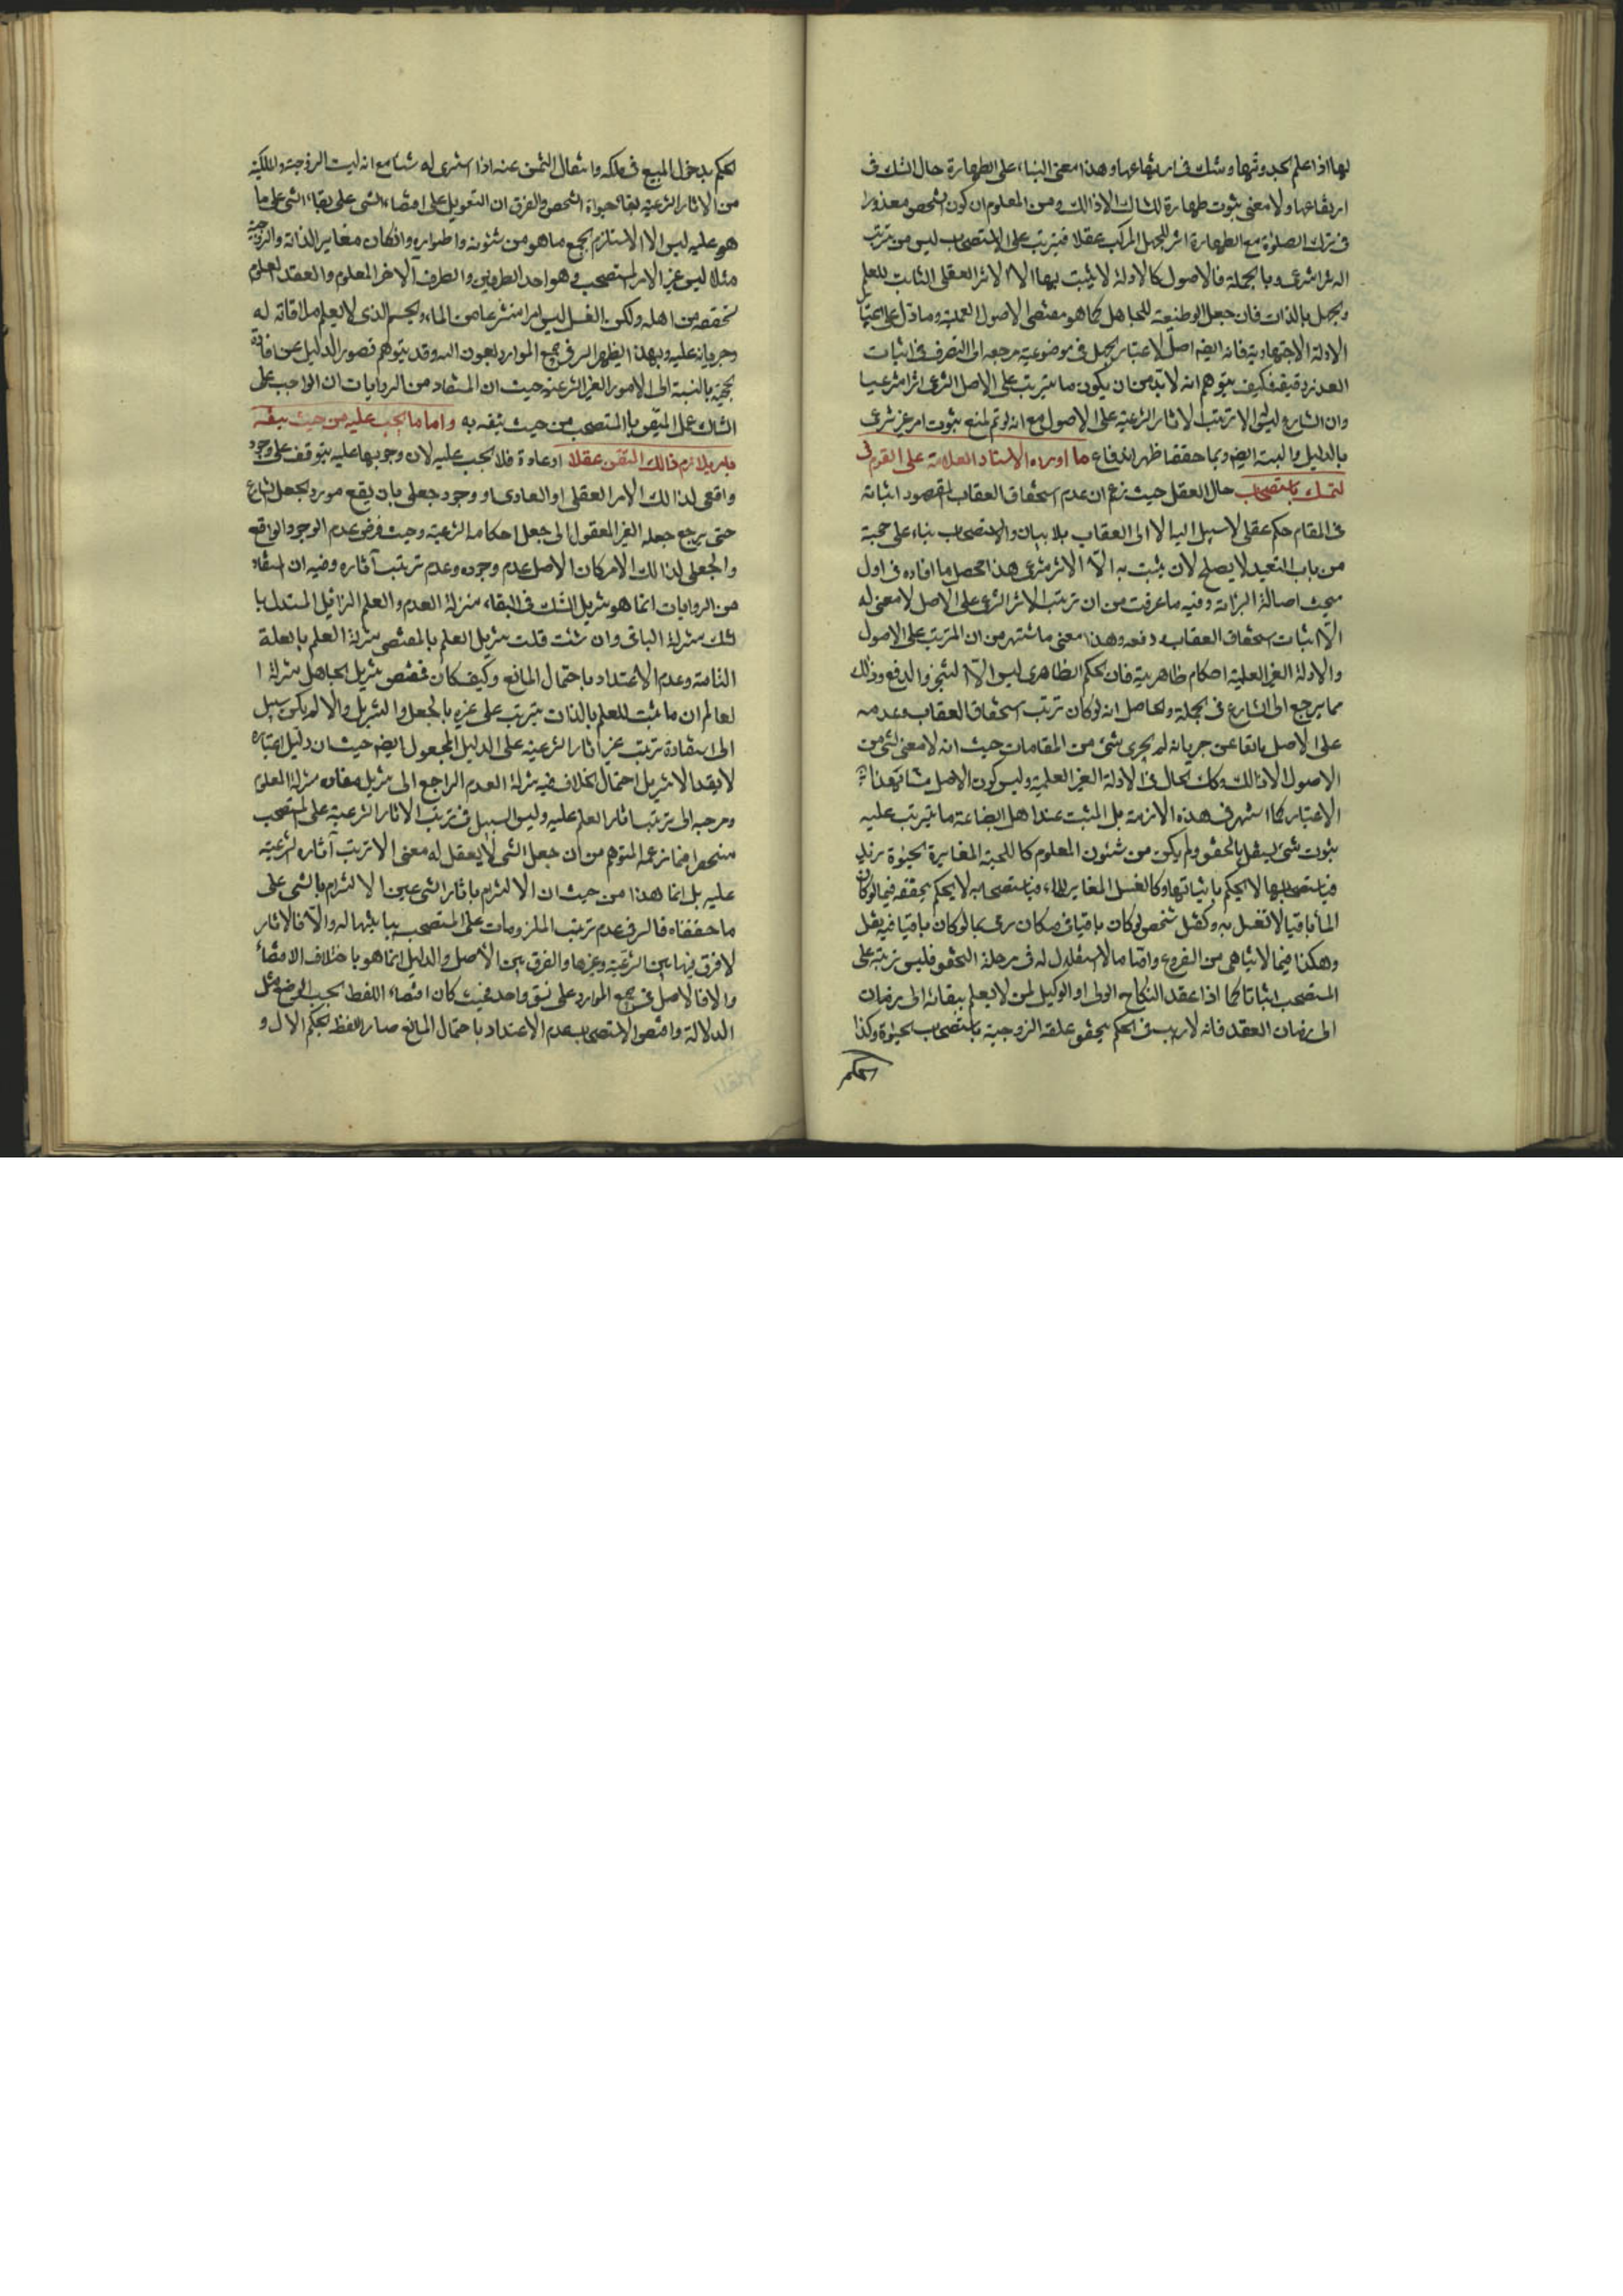 لها اذا علم بحدوثها وشك فى ارتفاعها وهذا معنى البناء على الطهارة حال الشك فى
ارتفاعها ولا معنى بثبوت طهارة للشاك الا ذالك ومن المعلوم ان كون الشخص معذورا
فى ترك الصلوة مع الطهارة اثر للجهل المركب عقلا فيترتب على الاستصحاب ليس من ترتب
اثر شرعى وبالجملة فالاصول كالادلة لا يثبت بها الا الاثر العقلى الثابت للعلم
وبجهل بالذات فان جعل الوظيفة للجاهل كما هو مقتضى الاصول العملية وما دل على اعتبار
الادلة الاجتهادية فانه ايضه اصل لاعتبار الجهل فى موضوعيته مرجعه الى التصرف فى اثبات
العذر فكيف يتوهم انه لا بد من ان يكون ما يترتب على الاصل الشرعى اثرا شرعيا
وان الشارع ليس له الا ترتيب الاثار الشرعية على الاصول مع انه لو تم لمنع ثبوت امر غير شرعى
بالدليل والبينة ايضه وبما حققنا ظهر اندفاع ما اورده الاستاد العلامة على القوم فى
لتمسك باستصحاب حال العقل حيث زعم ان عدم استحقاق العقاب المقصود اثباته
فى المقام حكم عقلى لا سبيل اليه الا العقاب بلا بيان والاستصحاب بناء على حجيته
من باب التعبد لا يصلح لان يثبت به الا الاثر شرعى هذا محصل ما افاده فى اول
مبحث اصالة البرائة وفيه ما عرفت من ان ترتب الاثر الشرعى على الاصل لا معنى له
الا اثبات استحقاق العقاب ودفعه وهذا معنى ما اشتهر من ان المترتب على الاصول
والادلة الغير العلمية احكام ظاهرية فان الحكم الظاهرى ليس الا التنجز والدفع وذلك
مما يرجع الى الشارع فى الجملة والحاصل انه لو كان ترتب استحقاق العقاب وعدمه
على الاصل مانعا عن جريانه لم يجرى شئ من المقامات حيث انه لا معنى لشئ من
الاصول الا ذالك وكك الحال فى الادلة الغير العلمية وليس كون الاصل مثبتا
الاعتبار كما اشتهر فى هذه الازمنة بل المثبت عند اهل البضاعة ما يترتب عليه
ثبوت شئ يستقل بالتحقق ولم يكن من شئون المعلوم كاللحية المغايرة لحيوة زيد
فباستصحابها لا يحكم باثباتها وكالغسل المغاير للماء فباستصحابه لا يحكم بتحققه فيما لو كان
الماء باقيا لانغسل به وكقتل شخص لو كان باقيا فى مكان رمى بما لو كان باقيا فيه يقتل
وهكذا فيما لا يتناهى من الفروع واما ما لا استقلال له فى مرحلة التحقق فليس ترتبه على
المستصحب اثباتا كما اذا عقد النكاح الولى او الوكيل لمن لا يعلم ببقائه الى زمان
الى زمان العقد فانه لا ريب فى الحكم بتحقق علقة الزوجية باستصحاب لحيوة وكذا
الحكم
لحكم بدخول المبيع فى ملكه وانتقال الثمن عنه اذا اشترى له شيئا مع انه ليست الزوجية والملكية
من الاثار الشرعية لبقاء حيواة الشخص والفرق ان التعويل على اقتضاء الشى على بقاء الشى على ما
هو عليه ليس الا الاستلزام لجمع ما هو من شئونه واطواره وان كان مغاير الذاته والزوجية
مثلا ليس غير الامر المستصحب وهو احد الطرفين والطرف الاخر المعلوم والعقد المعلوم
تحققه من اهله ولكن الغسل ليس امرا منتزعا من الماء والجسم الذى لا يعلم ملاقاته له
وجريانه عليه وبهذا يظهر السر فى جميع الموارد بعون الله وقد يتوهم قصور الدليل عن افادة
لحجية بالنسبة الى الامور الغير الشرعية حيث ان المستفاد من الروايات ان الواجب على
الشاك عمل المتيقن بالمستصحب من حيث تيقنه به واما ما يجب عليه من حيث تيقنه
بامر يلازم ذالك التيقن عقلا او عادة فلا يجب عليه لان وجوبها عليه يتوقف على وجود
واقعى لذالك الامر العقلى او العادى او وجود جعلى بان يقع مورد لجعل الشارع
حتى يرجع جعله الغير المعقول الى جعل احكامه الشرعية وحيث فرض عدم الوجود الواقعى
والجعلى لذالك الامر كان الاصل عدم وجوده وعدم ترتب آثاره وفيه ان المستفاد
من الروايات انما هو تنزيل الشك فى البقاء منزلة العدم والعلم الزائل المستبدل با
لشك منزلة الباقى وان شئت قلت تنزيل العلم بالمقتضى منزلة العلم بالعلة
التامة وعدم الاعتداد باحتمال المانع وكيف كان فمقتضى تنزيل الجاهل منزلة ا
لعالم ان ما يثبت للعلم بالذات يترتب على غيره بالجعل والتنزيل والا لم يكن سبيل
الى استفادة ترتب غير اثار الشرعية على الدليل المجعول ايضه حيث ان دليل اعتباره
لا يفيد الا تنزيل احتمال الخلاف فيه منزلة العدم الراجع الى تنزيل مفاده منزلة المعلوم
ومرجعه الى ترتب اثار العلم عليه وليس السبيل فى ترتب الاثار الشرعية على المستصحب
منحصرا فيما زعمه المتوهم من ان جعل الشى لا يعقل له معنى الا ترتب آثاره الشرعية
عليه بل انما هذا من حيث ان الالتزام باثار الشى عين الالتزام بالشى على
ما حققناه فالسر فى عدم ترتب الملزومات على المستصحب والا فالاثار
لا فرق فيها بين الشرعية وغيرها والفرق بين الاصل والدليل انما هو باختلاف الاقتضاء
والا فالاصل فى جميع الموارد على نسق واحد فحيث كان اقتضاء اللفظ بحسب الوضع مثل
الدلالة واقتضى الاستصحاب عدم الاعتداد باحتمال المانع صار اللفظ بحكم الاول و